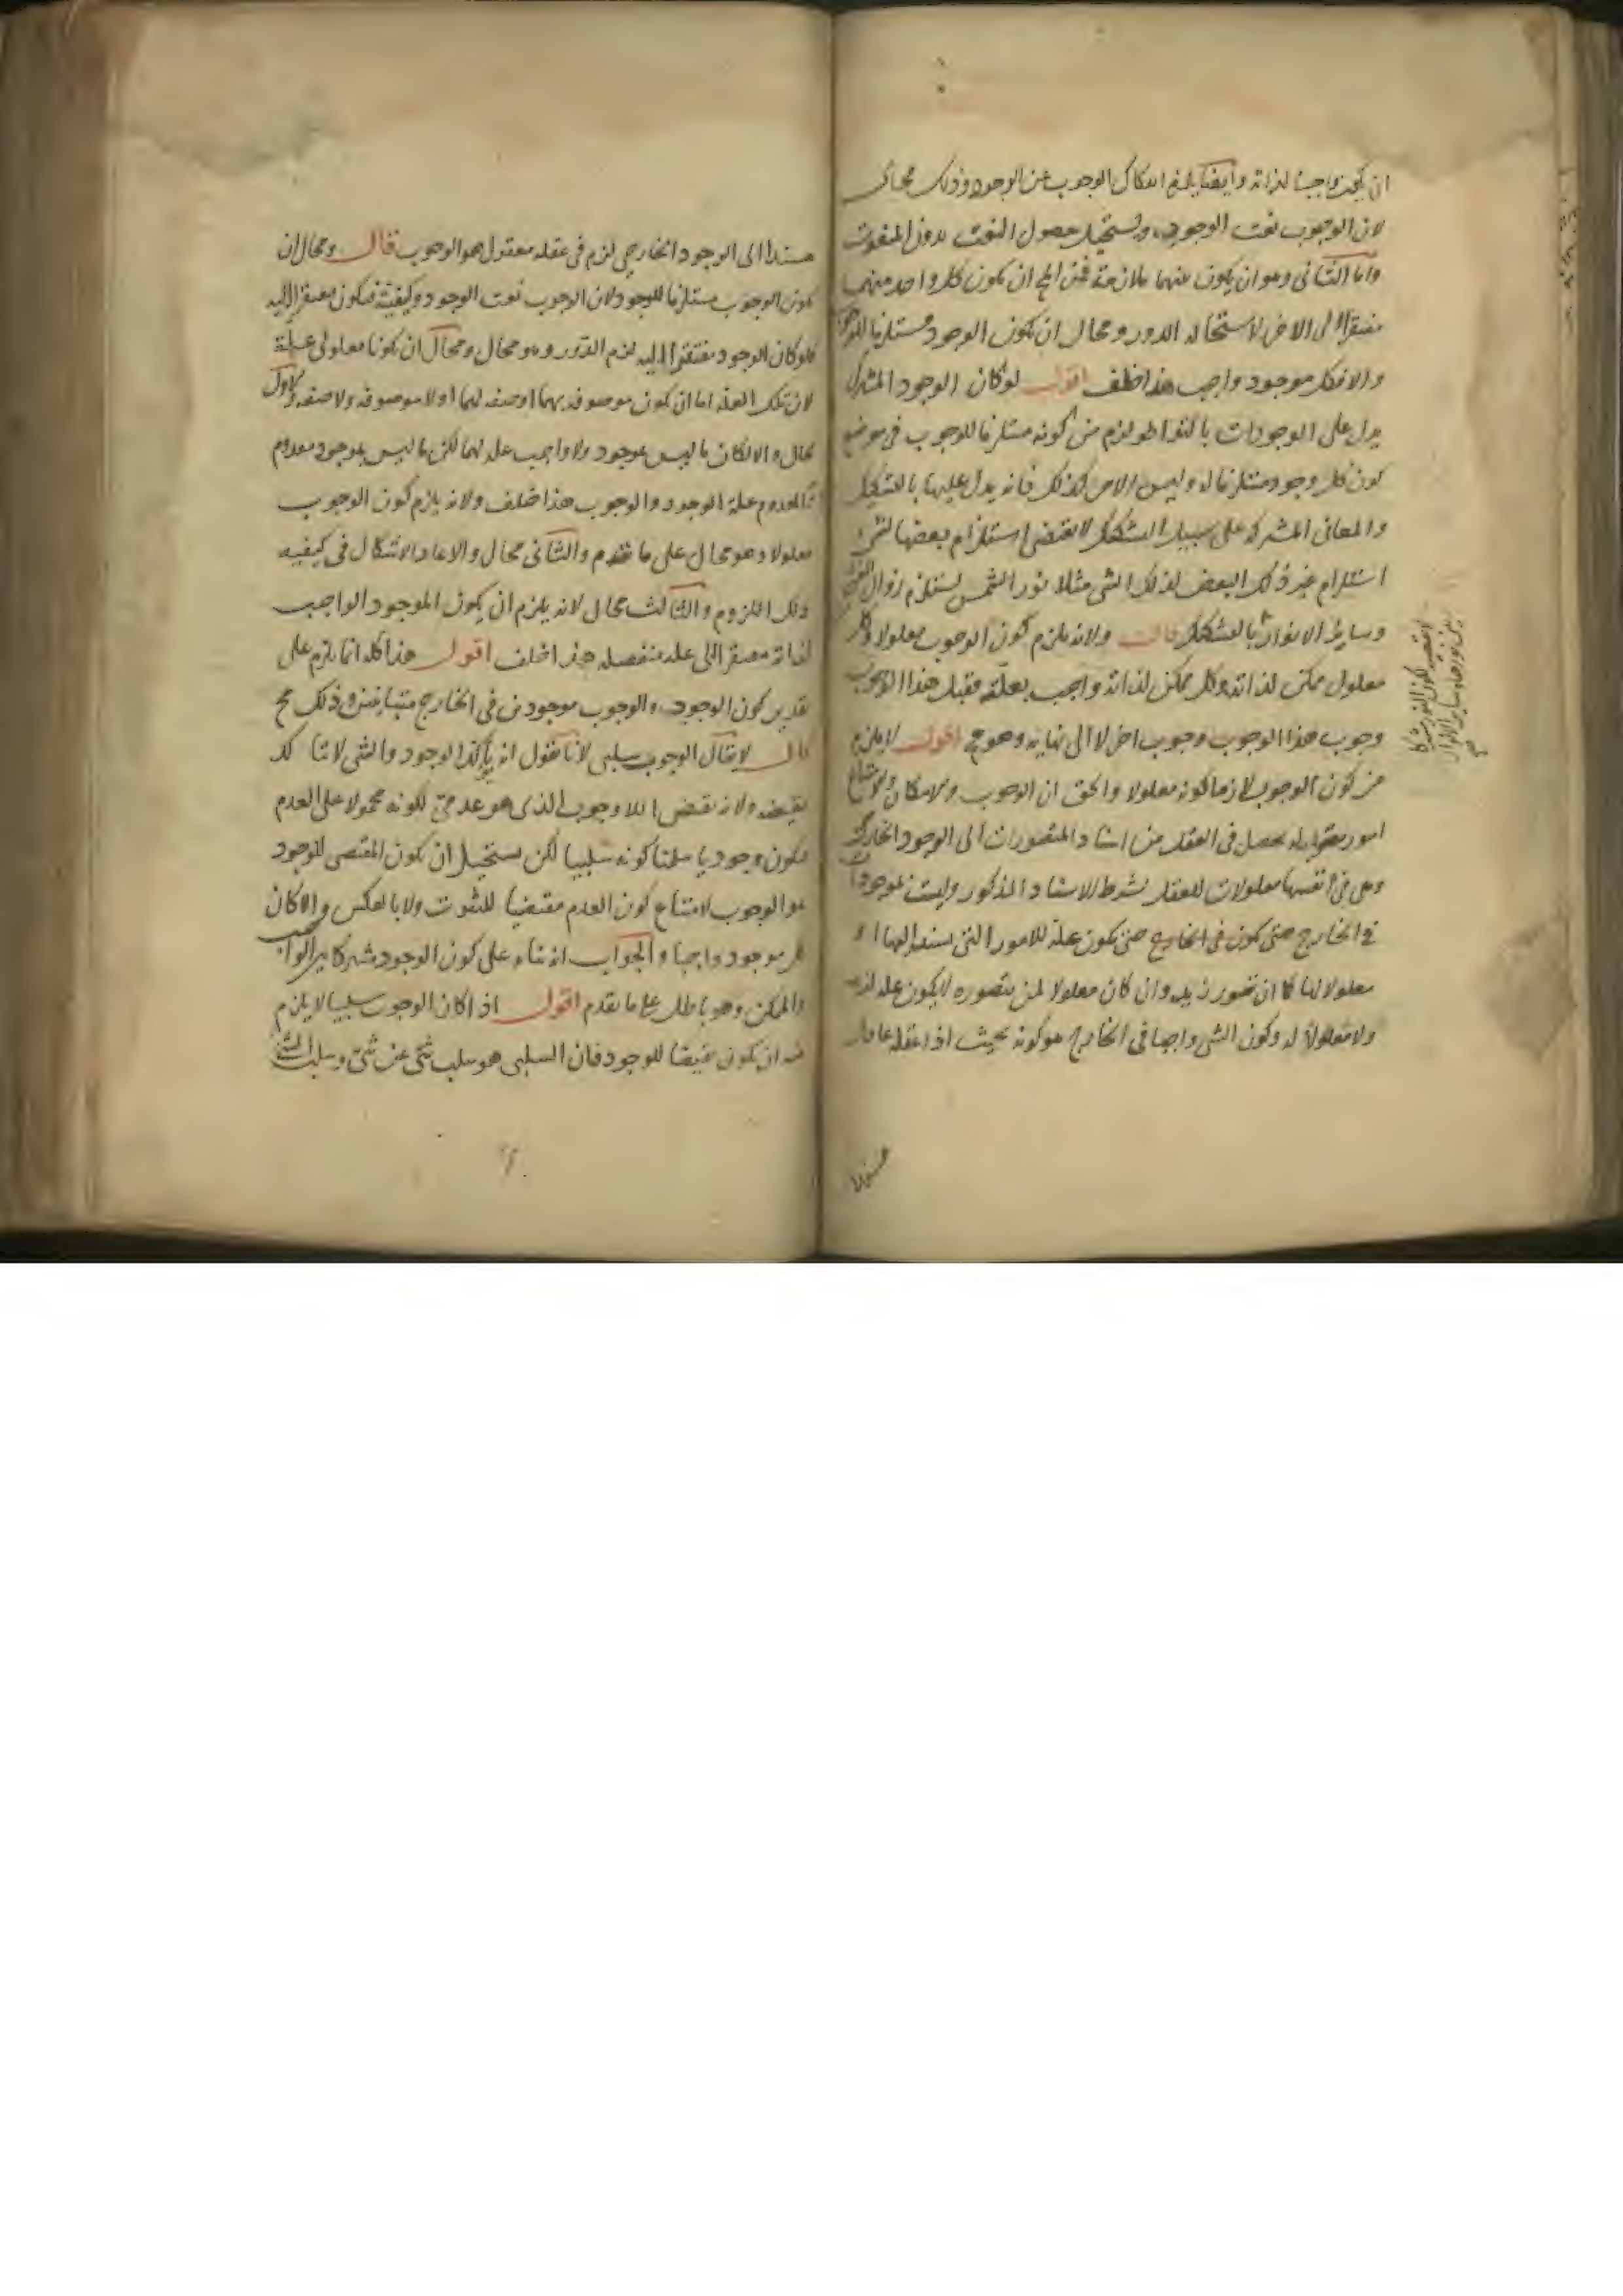 ان يكون واجبا لذاته وايضا يلزم انفكاك الوجوب عن الوجود وذلك محال
لان الوجوب نعت الوجود ويستحيل حصول النعت بدون المنعوت
واما الثانى وهو ان يكون بينهما ملازمة فمن المح ان يكون كل واحد منهما
مفتقرا الى الاخر لاستحاله الدور ومحال ان يكون الوجود مستلزما للوجوب
والا فكل موجود واجب هذا خلف اقول لو كان الوجود المشترك
يدل على الوجودات بالتواطو لزم من كونه مستلزما للوجوب فى موضع
كون كل وجود مستلزما له وليس الامر كذلك فانه يدل عليها بالتشكيك
والمعانى المشتركه على سبيل التشكيك لا تقتضى استلزام بعضها لشى
استلزام غير ذلك البعض لذلك الشى مثلا نور الشمس يستلزم زوال
وساير الانوار بالتشكيك قال ولانه يلزم كون الوجوب معلولا وكل
معلول ممكن لذاته وكل ممكن لذاته واجب بعلته فقبل هذا الوجوب
وجوب هذا الوجوب وجوب اخر لا الى نهايه وهو مح اقول لا يلزم
من كون الوجوب لازما كونه معلولا والحق ان الوجوب والامكان والامتناع
امور معقوله يحصل فى العقل من اسناد المتصورات الى الوجود الخارجى
وهى فى انفسها معلولات للعقل بشرط الاسناد المذكور وليست بموجودات
فى الخارج حتى يكون فى الخارج حتى يكون علة للامور التى يسند اليها او
معلولا لها كما ان تصور زيد وان كان معلولا لمن يتصوره لا يكون عله لزيد
ولا معلولا له وكون الشى واجبا فى الخارج هو كونه بحيث اذا عقله عاقل
لا تقتضى كون النور مشتركا
بين نورها وساير الانوار
صح
مسندا الى الوجود الخارجى لزم فى عقله معقول هو الوجوب قال ومحال ان
يكون الوجوب مستلزما للوجود لان الوجوب نعت الوجود وكيفيته فيكون مفتقرا اليه
فلو كان الوجود مفتقرا اليه لزم الدور وهو محال ومحال ان يكونا معلولى علة
لان تلك العله اما ان يكون موصوفه بهما او صفه لهما او لا موصوفه ولا صفه والاول
محال والا لكان ما ليس بموجود ولا واجب عله لهما لكن ما ليس بموجود معدوم
فالمعدوم علة الوجود والوجوب هذا خلف ولانه يلزم كون الوجوب
معلولا وهو محال على ما تقدم والثانى محال والا عاد الاشكال فى كيفيه
ذلك اللزوم والثالث محال لانه يلزم ان يكون الموجود الواجب
لذاته مفتقرا الى عله منفصله هذا خلف اقول هذا كله انما يلزم على
تقدير كون الوجود والوجوب موجودين فى الخارج متباينين وذلك مح
قال لا يقال الوجوب سلبى لانا نقول انه يأكد الوجود والشى لا يتاكد
بنقيضه ولانه نقيض اللاوجوب الذى هو عدمى لكونه محمولا على العدم
فيكون وجوديا سلمنا كونه سلبيا لكن يستحيل ان يكون المقتضى للوجود
هو الوجوب لامتناع كون العدم مقتضيا للثبوت ولا بالعكس والا كان
كل موجود واجبا والجواب انه بناء على كون الوجود مشتركا بين الواجب
والممكن وهو باطل على ما تقدم اقول اذا كان الوجوب سلبيا لا يلزم
منه ان يكون نقيضا للوجود فان السلبى هو سلب شى عن شى وسلب الشى